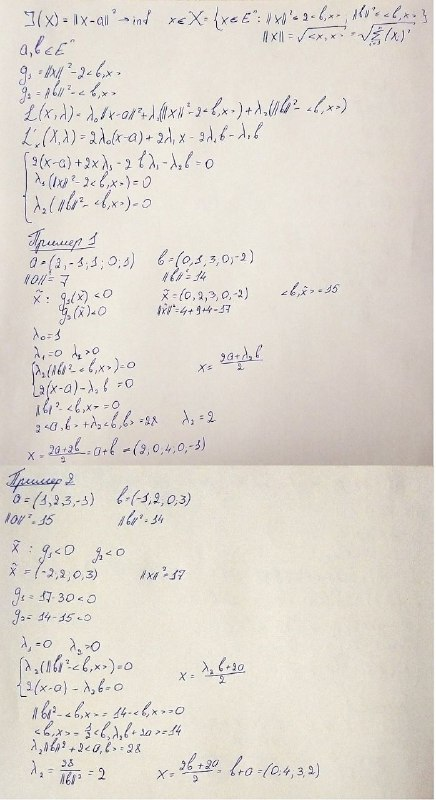 J(x) = ||x-a||² → inf   x ∈ X = {x ∈ Eⁿ: ||x||² ≤ 2<b,x>, ||b||² ≤ <b,x>}
||x|| = √<x,x> = √Σ(xᵢ)²
a, b ∈ Eⁿ
g₁ = ||x||² - 2<b,x>
g₂ = ||b||² - <b,x>
L(x,λ) = λ₀||x-a||² + λ₁(||x||² - 2<b,x>) + λ₂(||b||² - <b,x>)
L'ₓ(x,λ) = 2λ₀(x-a) + 2λ₁x - 2λ₁b - λ₂b
2(x-a) + 2xλ₁ - 2bλ₁ - λ₂b = 0
λ₁(||x||² - 2<b,x>) = 0
λ₂(||b||² - <b,x>) = 0
Пример 1
a = (2,-1,1,0,1)   b = (0,1,3,0,-2)
||a||² = 7   ||b||² = 14
x̃: g₁(x̃) < 0   x̃ = (0,2,3,0,-2)   <b,x̃> = 15
g₂(x̃) < 0   ||x̃||² = 4+9+4=17
λ₀ = 1
λ₁ = 0   λ₂ > 0
λ₂(||b||² - <b,x>) = 0   x = (2a+λ₂b)/2
2(x-a) - λ₂b = 0
||b||² - <b,x> = 0
2<a,b> + λ₂<b,b> = 28   λ₂ = 2
x = (2a+2b)/2 = a+b = (2,0,4,0,-1)
Пример 2
a = (1,2,3,-1)   b = (-1,2,0,3)
||a||² = 15   ||b||² = 14
x̃: g₁ < 0   g₂ < 0
x̃ = (-2,2,0,3)   ||x||² = 17
g₁ = 17-30 < 0
g₂ = 14-15 < 0
λ₁ = 0   λ₂ > 0
λ₂(||b||² - <b,x>) = 0   x = (λ₂b+2a)/2
2(x-a) - λ₂b = 0
||b||² - <b,x> = 14 - <b,x> = 0
<b,x> = ½<b,λ₂b+2a> = 14
λ₂||b||² + 2<a,b> = 28
λ₂ = 28/||b||² = 2   x = (2b+2a)/2 = b+a = (0,4,3,2)